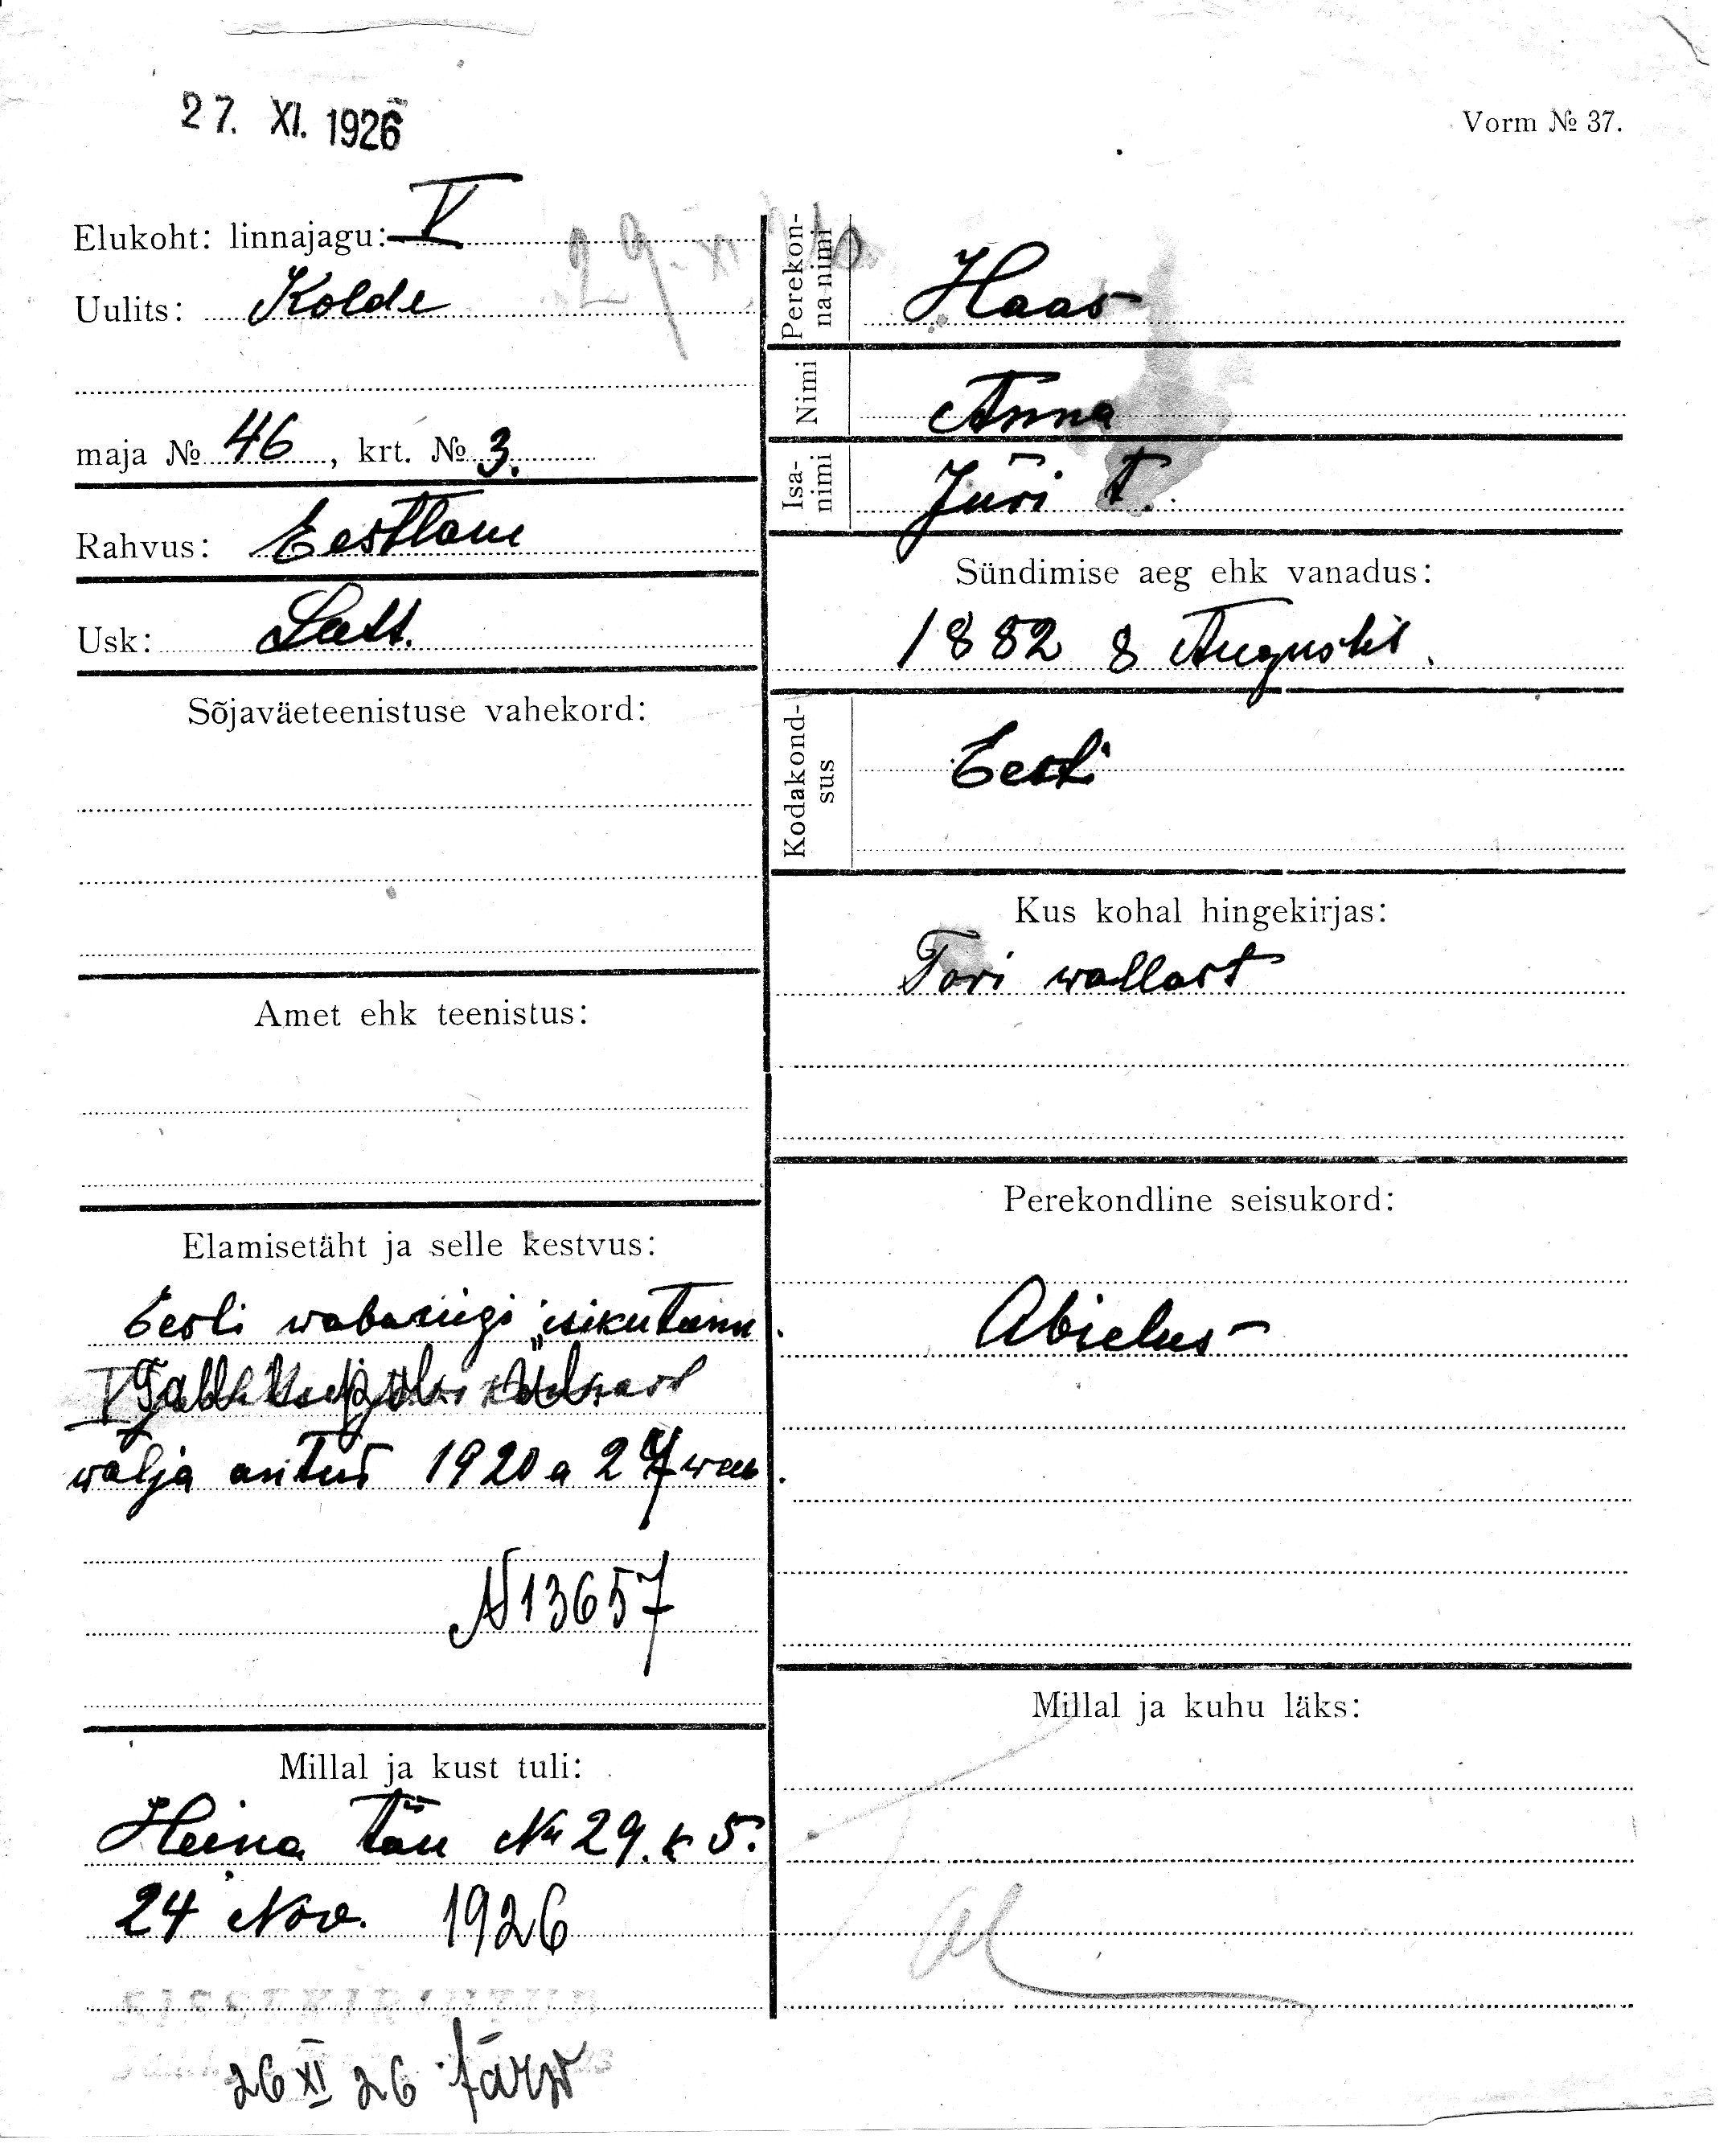 27. XI. 1926
Vorm № 37.
Elukoht: linnajagu: V
29 XI
Uulits: Kolde
maja № 46, krt. № 3.
Rahvus: Eestlane
Usk: Lutt.
Sõjaväeteenistuse vahekord:
Amet ehk teenistus:
Elamisetäht ja selle kestvus:
Eesti wabariigi isikutunn.
V
walja antud 1920 a 27 weeb.
N 13657
Millal ja kust tuli:
Heina tän № 29. k 5.
24 Nov. 1926
SISSEKIRJUTUD
26 XI 26 Järw
Perekonna nimi
Haas
Nimi
Anna
Isanimi
Jüri t.
Sündimise aeg ehk vanadus:
1882 8 Augustil.
Kodakondsus
Eesti
Kus kohal hingekirjas:
Tori wallast
Perekondline seisukord:
Abielus
Millal ja kuhu läks: